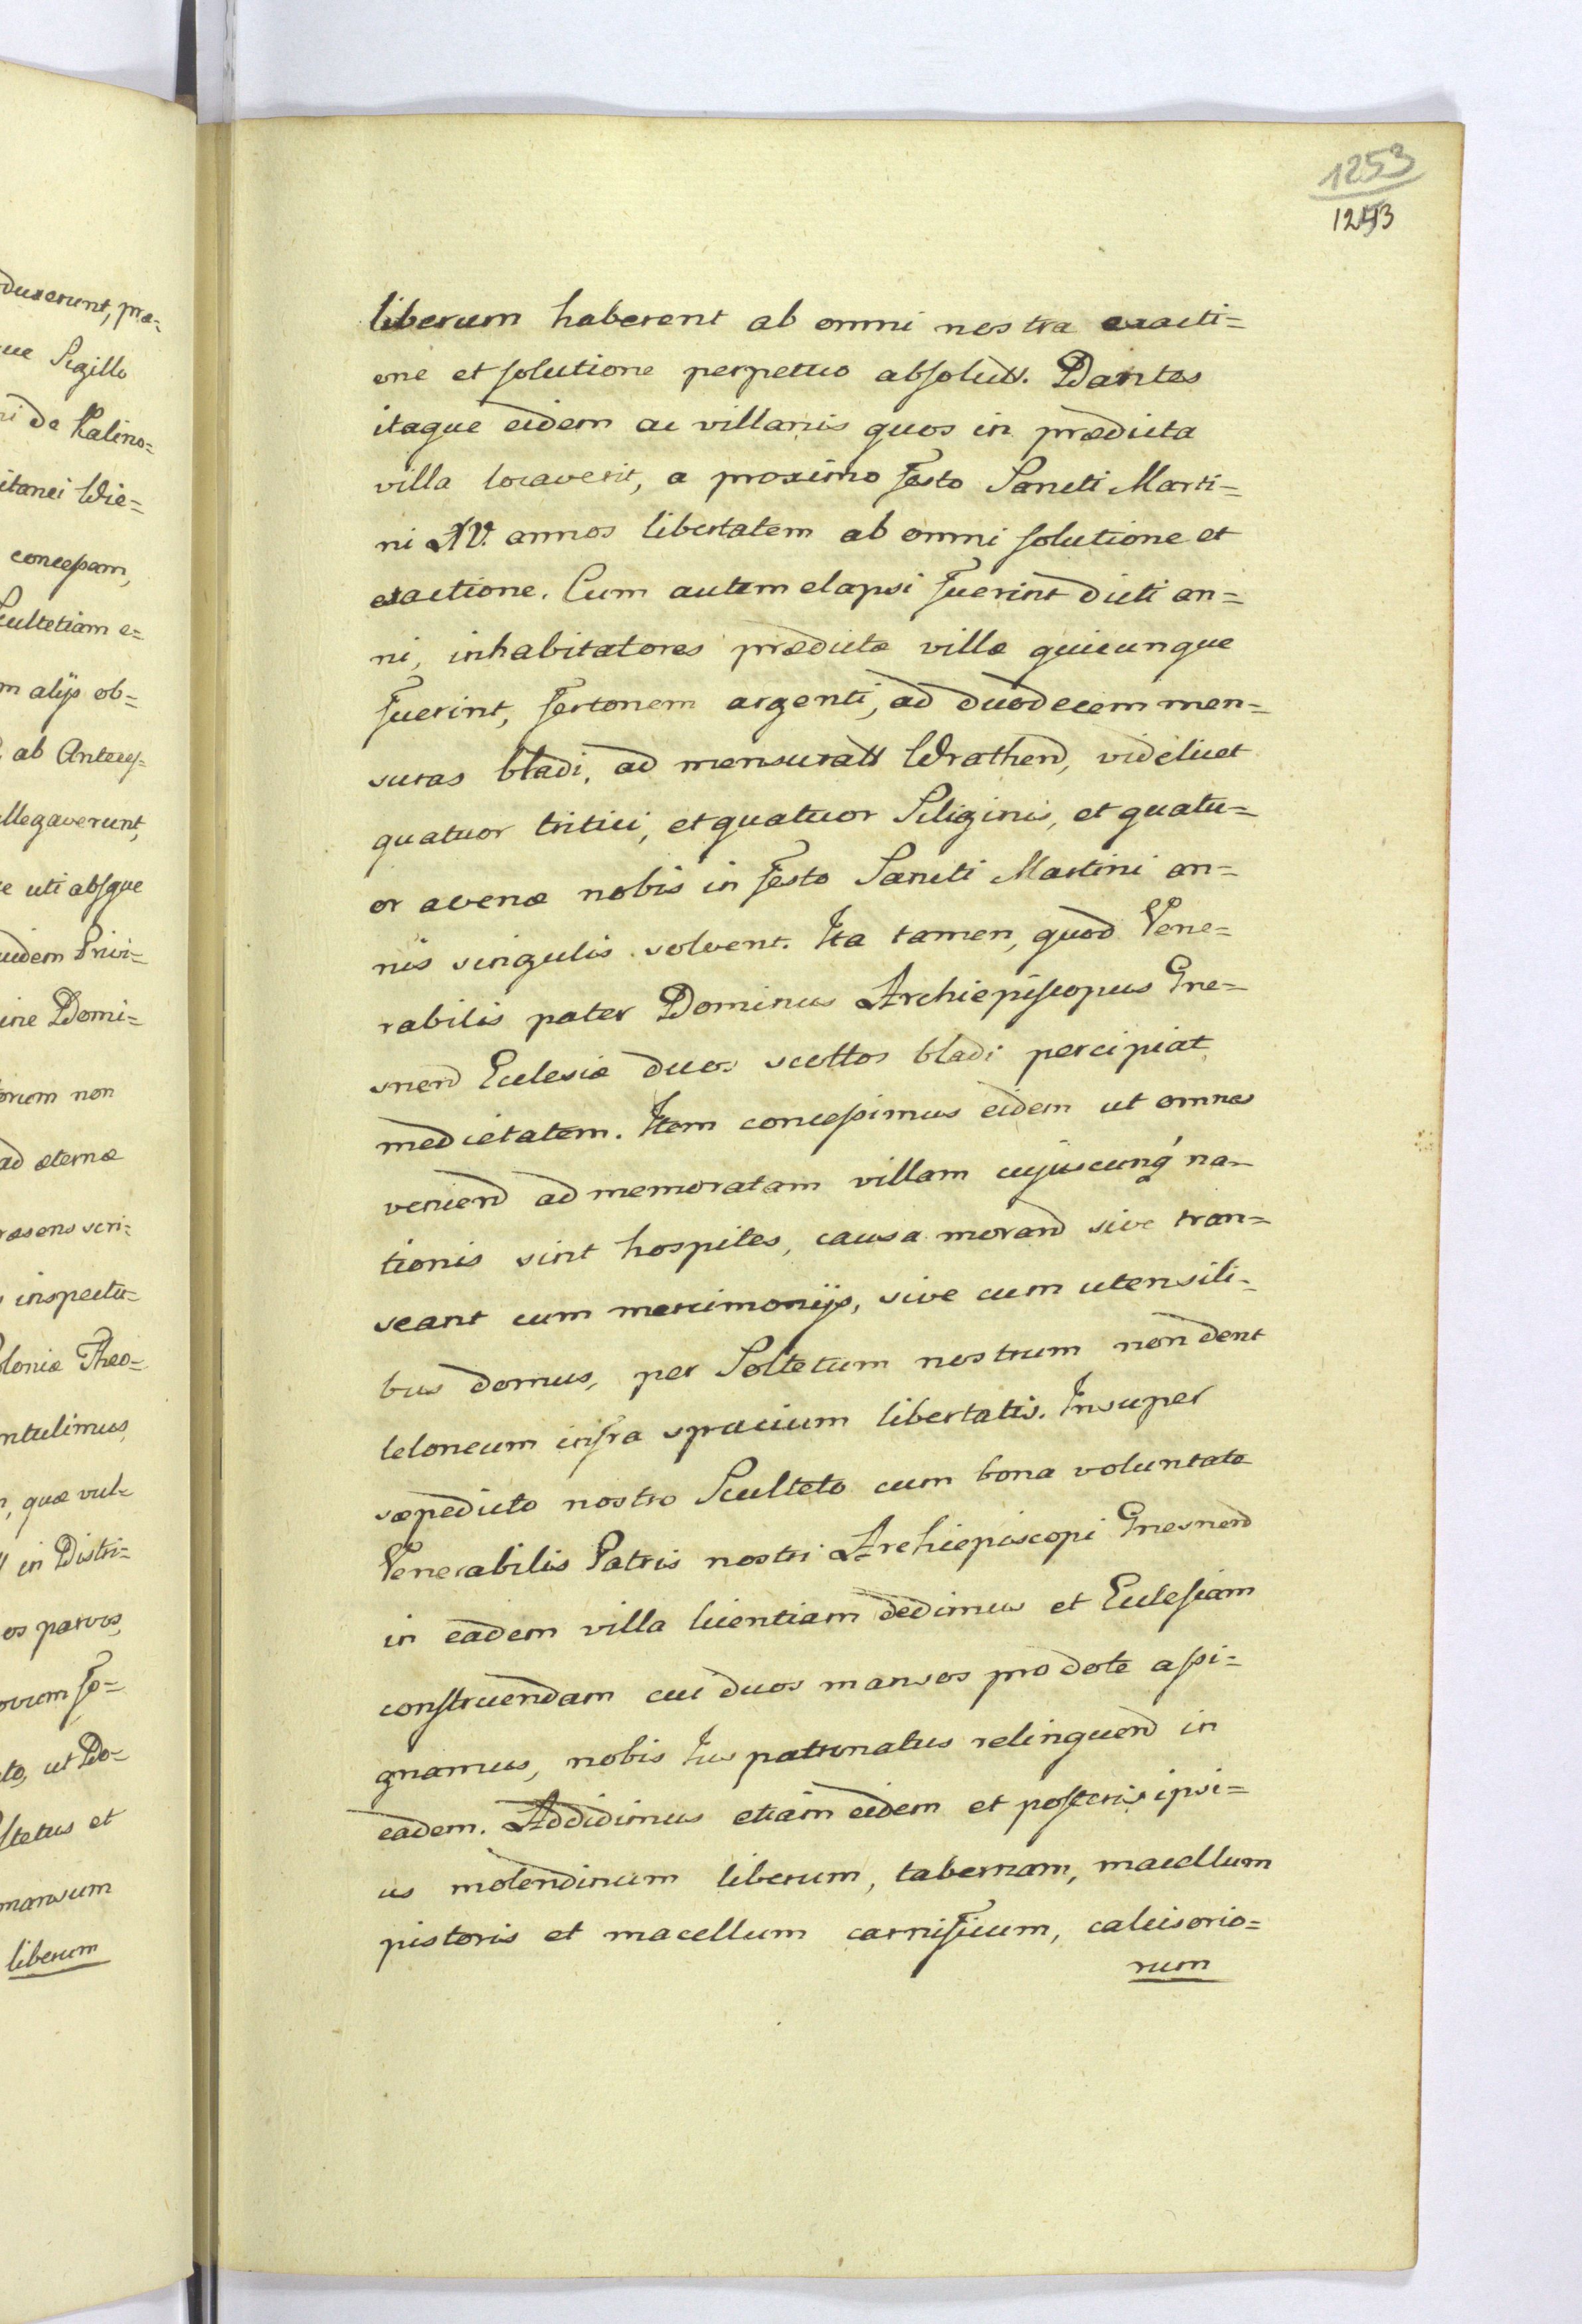 1253
1243
duxerunt, præ=
ue Sigillo
ni de Kalino=
itanei Wie=
concessam,
Scultetiam e=
m alijs ob=
ab Anteces=
llegaverunt,
e uti absque
uidem Privi=
ine Domi=
orum non
ad æternæ
ræsens scri=
inspectu=
oloniæ Theo=
ntulimus,
, quæ vul=
in Distri=
os parvos,
ovium so=
to, ut Do=
ltetus et
mansum
liberum
liberum haberent ab omni nostra exacti=
one et solutione perpetuo absolutt. Dantes
itaque eidem ac villanis quos in prædicta
villa locaverit, a proximo festo Sancti Marti=
ni XV. annos libertatem ab omni solutione et
exactione. Cum autem elapsi fuerint dicti an=
ni, inhabitatores prædictæ villæ quicunque
fuerint, fertonem argenti, ad duodecem men=
suras bladi, ad mensuratt Wrathend, videlicet
quatuor tritici, et quatuor Siliginis, et quatu=
or avenæ nobis in festo Sancti Martini an=
nis singulis solvent. Ita tamen, quod Vene=
rabilis pater Dominus Archiepiscopus Gne=
snend Eclesiæ duos scottos bladi percipiat
medietatem. Item concessimus eidem ut omnes
veniend ad memoratam villam cujuscunq́ na=
tionis sint hospites, causa morand sive tran=
seant cum mercimonijs, sive cum utensili=
bus domus, per Soltetum nostrum non dent
teloneum infra spacium libertatis. Insuper
sæpedicto nostro Sculteto cum bona voluntate
Venerabilis Patris nostri Archiepiscopi Gnesnend
in eadem villa licentiam dedimus et Eclesiam
construendam cui duos mansos pro dote assi=
gnamus, nobis Jus patronatus relinquend in
eadem. Addidimus etiam eidem et posteris ipsi=
us molendinum liberum, tabernam, macellum
pistoris et macellum carnificum, calcisorio=
rum